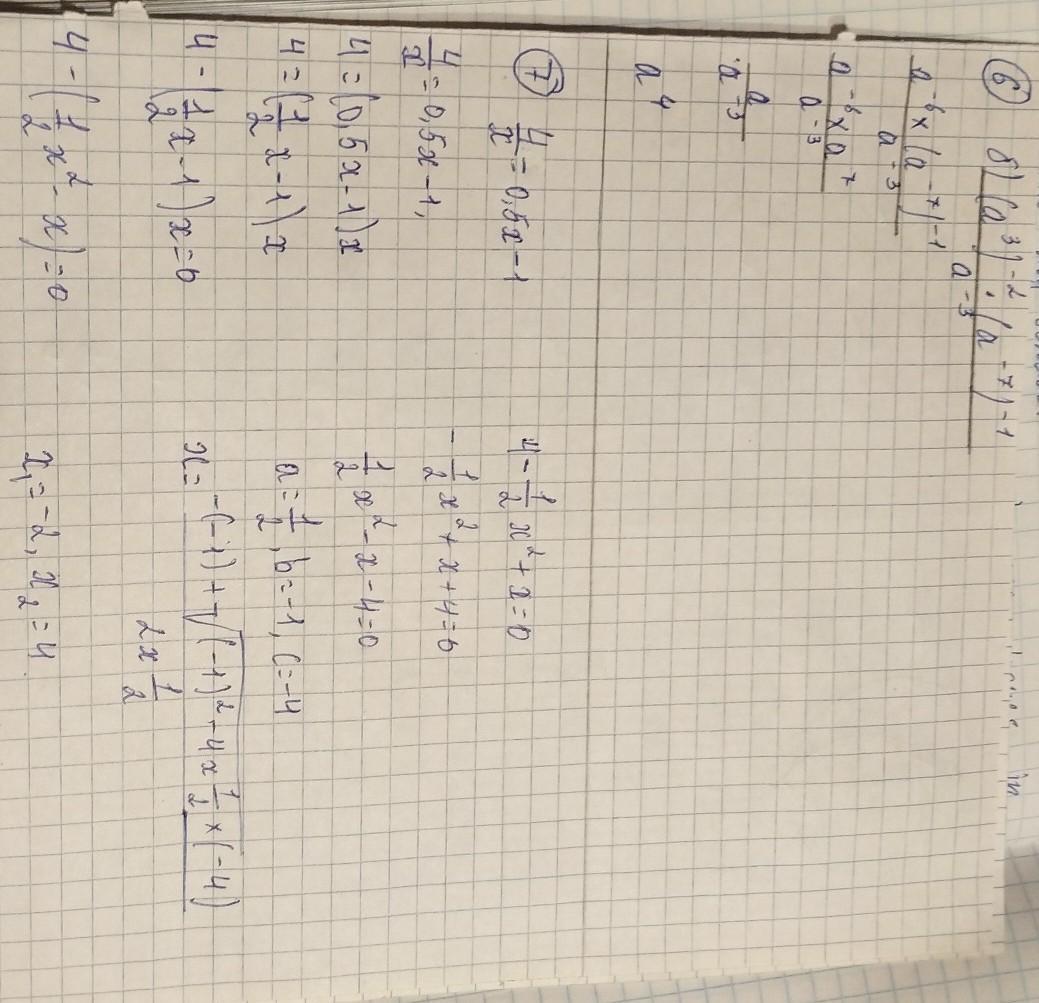 ⑥ б) (a³)⁻² · (a⁻⁷)⁻¹ / a⁻³
a⁻⁶ × (a⁻⁷)⁻¹ / a⁻³
a⁻⁶ × a⁷ / a⁻³
a / a⁻³
a⁴
⑦ 4/x = 0,5x - 1
4/x = 0,5x - 1,
4 = (0,5x - 1)x
4 = (1/2 x - 1)x
4 - (1/2 x - 1)x = 0
4 - (1/2 x² - x) = 0
4 - 1/2 x² + x = 0
- 1/2 x² + x + 4 = 0
1/2 x² - x - 4 = 0
a = 1/2, b = -1, c = -4
x = -(-1) + √(-1)² - 4 × 1/2 × (-4) / 2 × 1/2
x₁ = -2, x₂ = 4